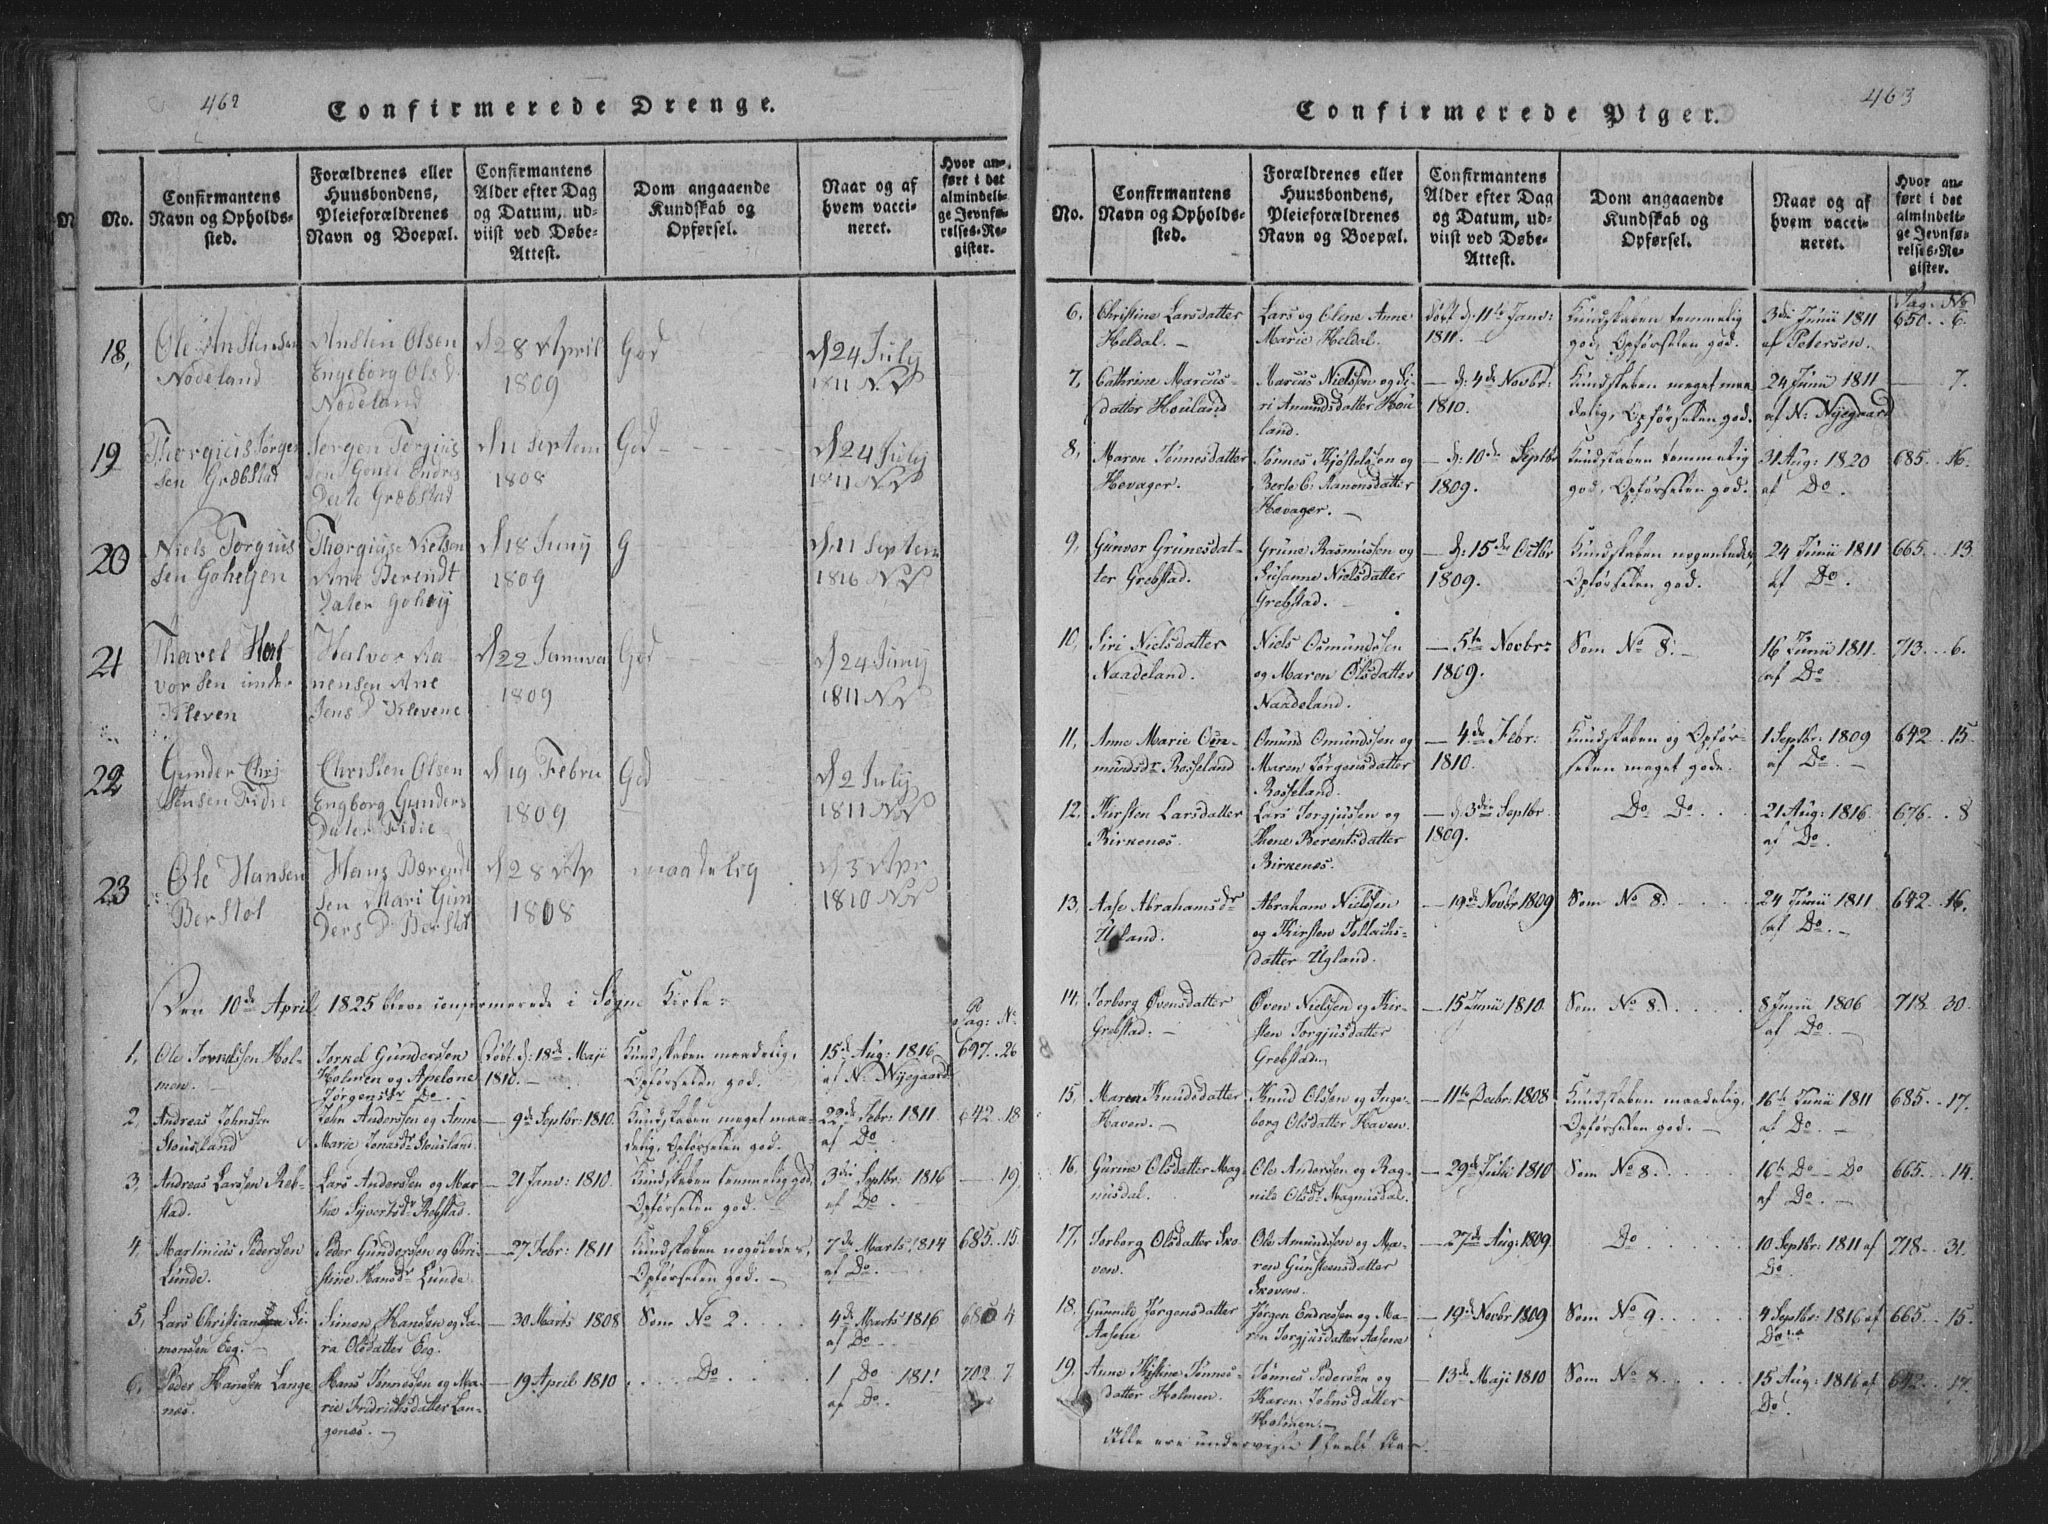 462
Confirmerede Drenge.
No.
Confirmantens
Navn og Opholds-
sted.
Forældrenes eller
Huusbondens,
Pleieforældrenes
Navn og Boepæl.
Confirmantens
Alder efter Dag
og Datum, ud-
viist ved Døbe-
Attest.
Dom angaaende
Kundskab og
Opførsel.
Naar og af
hvem vacci-
neret.
Hvor an-
ført i det
almindeli-
ge Jevnfø-
relses-Re-
gister.
18, Ole Anstensen Nodeland
Ansten Olsen
Engeborg Ols D.
Nodeland
d 28 April
1809
God
d 24 July
1811 N N
19 Thorgius Jørgen
sen Græbstad
Jørgen Torgius
sen Gonel Endres
Date Græbstad
d 11 Septem
1808
God
d 24 July
1811 N N
20 Niels Torgius
sen Gohejen
Thorgius Nielsen
Ane Berendt
Dater Gohey
d 18 Juny
1809
G
d 11 Septem
1816 N N
21 Tharel Hal
vorsen under
Kleven
Halvor Aa
nensen Ane
Jens D Klevene
d 22 Januva
1809
God
d 24 Juny
1811 N N
22 Gunder Chri
stensen Tidie
Christen Olsen
Engborg Gunders
Dater Tidie
d 19 Febru
1809
God
d 2 July
1811 N N
23 Ole Hansen
Berstol
Hans Bærendt
sen Mari Gun
Ders D Berstol
d 28 Ap
1808
maadelig
d 3 Apr
1810 N N
Den 10de April 1825 bleve confirmerede i Søgne Kirke:
Pag: No
1, Ole Torkelssen Hol-
men.
Torkel Gunderssen
Holmen og Apelone
Jørgensdr Do.
Døbt d: 18de Maji
1810.
Kundskaben maadelig,
Opførselen god.
15de Aug: 1816
af N: Nyegaard
697. 26
2, Andreas Johnssen
Stousland
John Anderssen og Anne
Marie Jonasdr Stousland.
9de Septbr: 1810.
Kundskaben meget maa-
delig, Opførselen god.
22de Febr: 1811.
af Do
642. 18
3, Andreas Larssen Reb-
stad.
Lars Anderssen og Mar-
the Syvertsdr Rebstad.
21 Janv: 1810.
Kundskaben temmelig god,
Opførselen god.
3die Septbr: 1816
af Do.
19.
4, Martinius Pederssen
Lunde.
Peder Gunderssen og Chri-
stine Hansdr Lunde.
27 Febr: 1811
Kundskaben nogenledes,
Opførselen god.
7de Marts 1814
af Do.
685. 15
5, Lars Christian Si-
monsen Eeg.
Simon Hansen og Sa-
ra Olsdatter Eeg.
30 Marts 1808
Som No 2.
4de Marts 1816
af Do.
680 4
6, Peder Hansen Lange
næs.
Hans Tønnessen og Ma-
rie Fredrichsdatter Lan-
genæs.
19 April 1810
Do
1 Do 1811
af Do.
702. 7
463
Confirmerede Piger.
No.
Confirmantens
Navn og Opholds-
sted.
Forældrenes eller
Huusbondens,
Pleieforældrenes
Navn og Boepæl.
Confirmantens
Alder efter Dag
og Datum, ud-
viist ved Døbe-
Attest.
Dom angaaende
Kundskab og
Opførsel.
Naar og af
hvem vacci-
neret.
Hvor an-
ført i det
almindeli-
ge Jevnfø-
relses-Re-
gister.
Pag: No
6, Christine Larsdatter
Heldal.
Lars og Olene Anne
Marie Heldal.
Døbt d: 11te Janv:
1811.
Kundskaben temmelig
god, Opførselen god.
3die Junii 1811
af Petersen.
650. 6.
7, Cathrine Marcus-
datter Houland
Marcus Nielssen og Si-
ri Amundsdatter Hou-
land.
d: 4de Novbr:
1810.
Kundskaben meget maa-
delig, Opførselen god.
24 Junii 1811
af N: Nyegaard
7.
8, Maren Tønnesdatter
Hevager.
Tønnes Kjøstelssen og
Berte C: Aanonsdatter
Hævager.
d: 10de Septbr
1809.
Kundskaben temmelig
god, Opførselen god.
31 Aug: 1820
af Do.
685. 16.
9, Gunvor Grunesdat-
ter Grebstad.
Grune Rasmussen og
Susanne Nielsdatter
Grebstad.
d: 15de Octbr
1809.
Kundskaben nogenledes,
Opførselen god.
24 Junii 1811
af Do.
665. 13.
10, Siri Nielsdatter
Naadeland.
Niels Osmundssen
og Maren Olsdatter
Naadeland.
5te Novbr:
1809.
Som No 8.
16 Junii 1811.
af Do
713. 6.
11, Anne Marie Om-
mundsdr Rosseland
Omund Omundssen og
Maren Jørgensdatter
Rosseland.
4de Febr:
1810.
Kundskaben og Opfør-
selen meget gode.
1 Septbr: 1809
af Do.
642. 15.
12, Kirsten Larsdatter
Birkenæs.
Lars Torgjussen og
Thone Berentsdatter
Birkenæs.
d: 3die Septbr
1809.
Do Do.
21 Aug: 1816
af Do.
676. 8
13, Aase Abrahamsdr
Ugland.
Abraham Nielssen
og Kirsten Tollachs-
datter Ugland.
19de Novbr 1809
Som No 8.
24 Junii 1811
af Do.
642. 16.
14, Torborg Ovensdatter
Grebstad.
Oven Nielssen og Kir-
sten Torgjusdatter
Grebstad.
15 Junii 1810.
Som No 8.
8 Junii 1806
af Do
718. 30.
15, Maren Knudsdatter
Haven.
Knud Olssen og Inge-
borg Olsdatter Haven.
11te Decbr: 1808
Kundskaben maadelig.
Opførselen god.
16de Junii 1811
af Do.
685. 17.
16, Gurine Olsdatter Mag-
nusdal.
Ole Anderssen og Rag-
nild Olsdr Magnusdal.
29de Julii 1810
Som No 8.
16de Do Do
af Do.
665. 14.
17, Torborg Olsdatter Sko-
ven.
Ole Amundssen og Ma-
ren Gunsteensdatter
Skoven.
27de Aug: 1809
Do
10 Septbr: 1811 af
Do.
718. 31.
18, Gunnild Jørgensdatter
Aasene
Jørgen Endressen og Ma-
ren Torgjusdatter Aasene
19de Novbr 1809
Som No 9.
4 Septbr: 1816 af
Do.
665. 15.
19, Anne Kistine Tønnes-
datter Holmen.
Tønnes Pederssen og
Karen Johnsdatter
Holmen.
13de Maji 1810
Som No 8.
15 Aug: 1816 af
Do.
642. 17.
Alle ere underviste 1 heelt Aar.